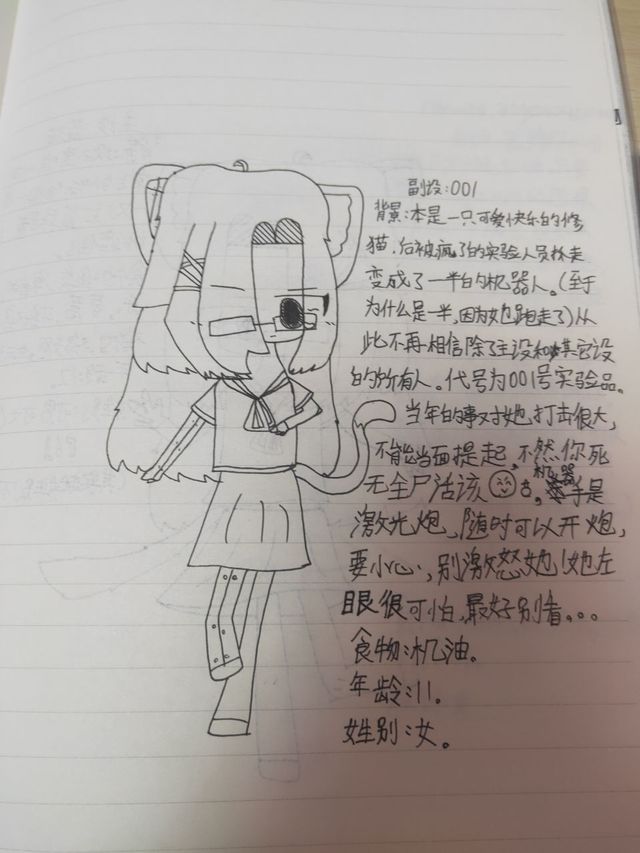 副设:001
背景:本是一只可爱快乐的修
猫,后被疯了的实验人员抓走
变成了一半的机器人。(至于
为什么是一半,因为她跑走了)从
此不再相信除了主设和其它设
的所有人。代号为001号实验品。
当年的事对她打击很大,
不能当面提起,不然你死
无全尸活该 右,机器手是
激光炮,随时可以开炮,
要小心,别激怒她!她左
眼很可怕,最好别看。。。
食物:机油。
年龄:11.
姓别:女。